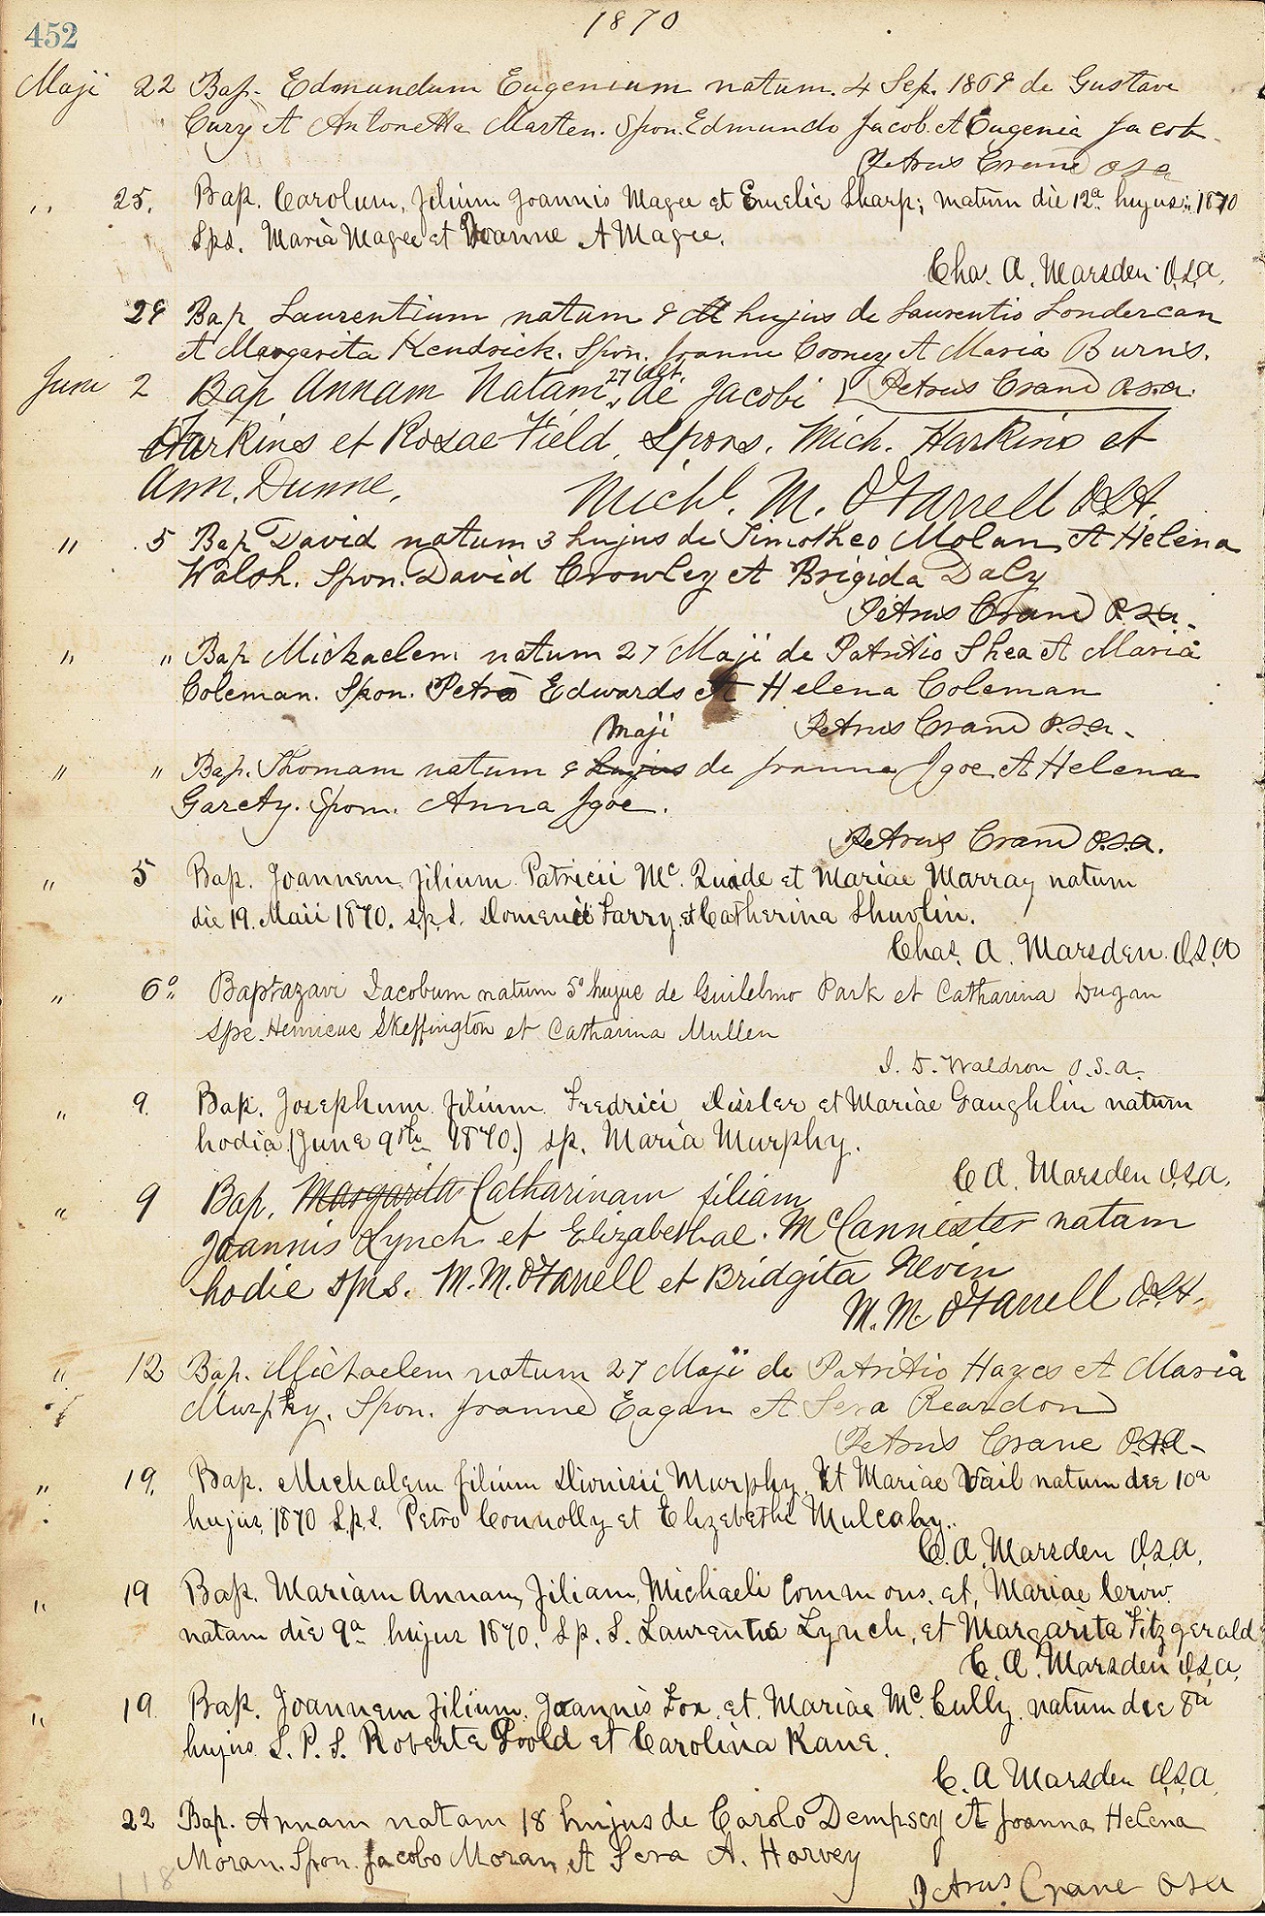 452
1870
Maji 22 Bap. Edmundum Eugenium natum 4 Sep. 1869 de Gustave
Cury et Antonetta Marten. Spon. Edmundo Jacob et Eugenia Jacob
Petrus Crane OSA
" 25. Bap. Carolum, filium Joannis Magee et Emelie Sharp; natum die 12a hujus 1870
Sps. Maria Magee et Joanne A Magee.
Chas. A. Marsden O.S.A.
29 Bap Laurentium natum 9 hujus de Laurentio Londercan
et Margarita Kendrick. Spon. Joanne Cooney et Maria Burns.
Petrus Crane O.S.A.
Juni 2 Bap Annam Natam 27 Ult. de Jacobi
Harkins et Rosae Field, Spons. Mich. Harkins et
Ann. Dunne.
Michl. M. O'Farrell O.S.A.
" 5 Bap David natum 3 hujus de Timotheo Molan et Helena
Walsh. Spon. David Crowley et Brigida Daly
Petrus Crane O.S.A.
" " Bap Michaelem natum 27 Maji de Patritio Shea et Maria
Coleman. Spon. Petro Edwards et Helena Coleman
Petrus Crane O.S.A.
Maji
" " Bap. Thomam natum 9 hujus de Joanne Igoe et Helena
Garety. Spon. Anna Igoe.
Petrus Crane O.S.A.
" 5 Bap. Joannem filium Patricii Mc. Quade et Mariae Murray natum
die 19. Maii 1870. s.p.s. Domenic Farry et Catherina Shuvlin.
Chas. A. Marsden. O.S.A
" 6o Baptazavi Iacobum natum 5o hujue de Guilelmo Park et Catharina Dugan
Spe. Henricus Skeffington et Catharina Mullen
I. D. Waldron O.S.A.
" 9. Bap. Josephum filium Fredrici Dissler et Mariae Gaughlin natum
hodia (June 9th 1870.) sp. Maria Murphy.
C A. Marsden O.S.A.
" 9 Bap. Margarita Catharinam filiam
Joannis Lynch et Elizabethae. McCannister natam
hodie sps. M. M. O'Farrell et Bridgita Nevin
M. M. O'Farrell O.S.A.
" 12 Bap. Michaelem natum 27 Maji de Patritio Hayes et Maria
Murphy. Spon. Joanne Eagan et Sera Reardon
Petrus Crane O.S.A.
" 19. Bap. Michalem filium Dionisii Murphy. Et Mariae Vail natum die 10a
hujus 1870 S.p.s. Petro Connolly et Elizebethe Mulcahy.
C. A. Marsden O.S.A.
" 19 Bap. Mariam Annam, filiam, Michaeli Commons. et, Mariae Crow.
natam die 9a hujus 1870. Sp. S. Laurentio Lynch, et Margarita Fitzgerald
C. A. Marsden O.S.A.
" 19 Bap. Joannem filium. Joannis Fox. et. Mariae Mc. Cully natum die 8a
hujus S. P. S. Roberte Poold et Carolina Kane.
C. A Marsden O.S.A
22 Bap. Annam natam 18 hujus de Carolo Dempsey et Joanna Helena
Moran. Spon. Jacobo Moran et Sera A. Harvey
Petrus Crane OSA
118